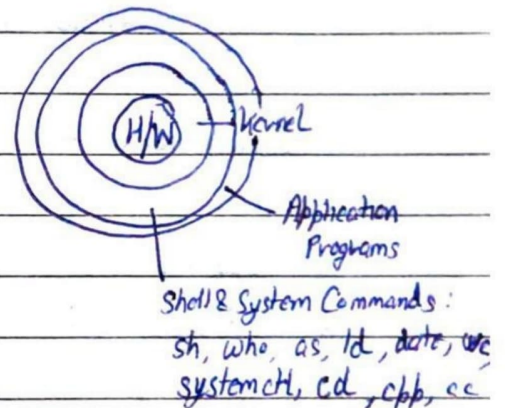 H/W
Kernel
Application
Programs
Shell & System Commands :
sh, who, as, ld, date, wc,
systemctl, cd, cpp, cc